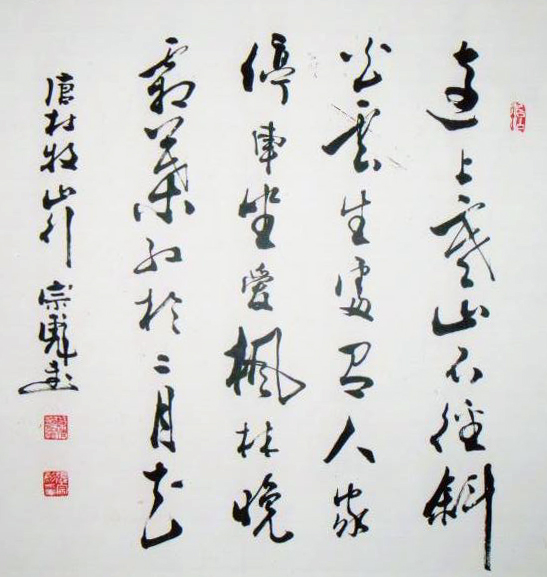 遠上寒山石徑斜
白雲生處有人家
停車坐愛楓林晚
霜葉紅於二月花
唐杜牧山行 宗